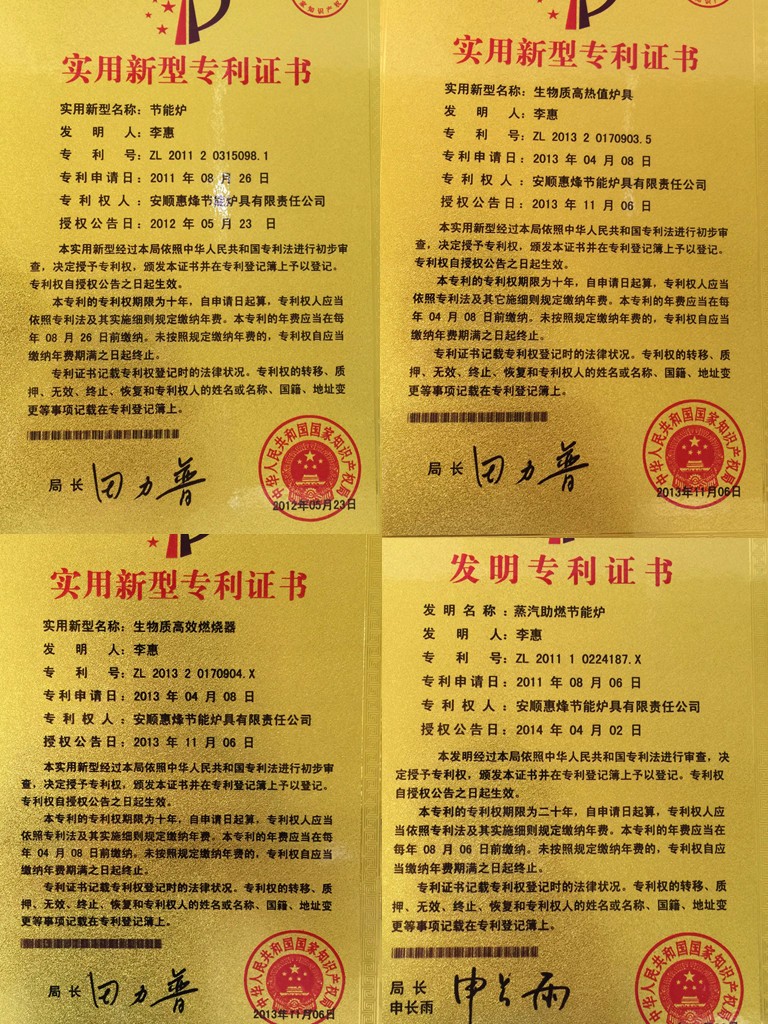 实用新型专利证书
实用新型名称：节能炉
发 明 人：李惠
专 利 号：ZL 2011 2 0315098.1
专利申请日：2011 年 08 月 26 日
专 利 权 人：安顺惠烽节能炉具有限责任公司
授权公告日：2012 年 05 月 23 日
本实用新型经过本局依照中华人民共和国专利法进行初步审
查，决定授予专利权，颁发本证书并在专利登记簿上予以登记。
专利权自授权公告之日起生效。
本专利的专利权期限为十年，自申请日起算，专利权人应当
依照专利法及其实施细则规定缴纳年费。本专利的年费应当在每
年 08 月 26 日前缴纳。未按照规定缴纳年费的，专利权自应当
缴纳年费期满之日起终止。
专利证书记载专利权登记时的法律状况。专利权的转移、质
押、无效、终止、恢复和专利权人的姓名或名称、国籍、地址变
更等事项记载在专利登记簿上。
局长 田力普
中华人民共和国国家知识产权局
2012年05月23日
实用新型专利证书
实用新型名称：生物质高热值炉具
发 明 人：李惠
专 利 号：ZL 2013 2 0170903.5
专利申请日：2013 年 04 月 08 日
专 利 权 人：安顺惠烽节能炉具有限责任公司
授权公告日：2013 年 11 月 06 日
本实用新型经过本局依照中华人民共和国专利法进行初步审
查，决定授予专利权，颁发本证书并在专利登记簿上予以登记。
专利权自授权公告之日起生效。
本专利的专利权期限为十年，自申请日起算，专利权人应当
依照专利法及其它施细则规定缴纳年费。本专利的年费应当在每
年 04 月 08 日前缴纳。未按照规定缴纳年费的，专利权自应当
缴纳年费期满之日起终止。
专利证书记载专利权登记时的法律状况。专利权的转移、质
押、无效、终止、恢复和专利权人的姓名或名称、国籍、地址变
更等事项记载在专利登记簿上。
局长 田力普
中华人民共和国国家知识产权局
2013年11月06日
实用新型专利证书
实用新型名称：生物质高效燃烧器
发 明 人：李惠
专 利 号：ZL 2013 2 0170904.X
专利申请日：2013 年 04 月 08 日
专 利 权 人：安顺惠烽节能炉具有限责任公司
授权公告日：2013 年 11 月 06 日
本实用新型经过本局依照中华人民共和国专利法进行初步审
查，决定授予专利权，颁发本证书并在专利登记簿上予以登记。
专利权自授权公告之日起生效。
本专利的专利权期限为十年，自申请日起算，专利权人应当
依照专利法及其实施细则规定缴纳年费。本专利的年费应当在每
年 04 月 08 日前缴纳。未按照规定缴纳年费的，专利权自应当
缴纳年费期满之日起终止。
专利证书记载专利权登记时的法律状况。专利权的转移、质
押、无效、终止、恢复和专利权人的姓名或名称、国籍、地址变
更等事项记载在专利登记簿上。
局长 田力普
中华人民共和国国家知识产权局
2013年11月06日
发明专利证书
发 明 名 称：蒸汽助燃节能炉
发 明 人：李惠
专 利 号：ZL 2011 1 0224187.X
专利申请日：2011 年 08 月 06 日
专 利 权 人：安顺惠烽节能炉具有限责任公司
授权公告日：2014 年 04 月 02 日
本发明经过本局依照中华人民共和国专利法进行审查，决
定授予专利权，颁发本证书并在专利登记簿上予以登记。专利权
自授权公告之日起生效。
本专利的专利权期限为二十年，自申请日起算，专利权人应
当依照专利法及其实施细则规定缴纳年费。本专利的年费应当在
每年 08 月 06 日前缴纳。未按照规定缴纳年费的，专利权自应
当缴纳年费期满之日起终止。
专利证书记载专利权登记时的法律状况。专利权的转移、质
押、无效、终止、恢复和专利权人的姓名或名称、国籍、地址变
更等事项记载在专利登记簿上。
局长
申长雨
申长雨
中华人民共和国国家知识产权局